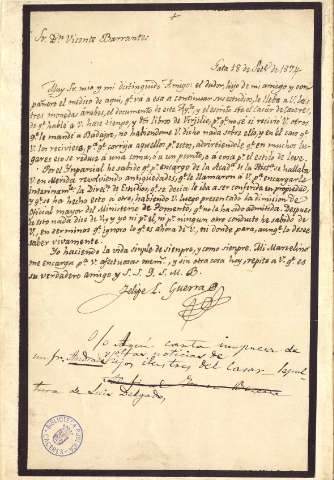 Sr. Dn. Vicente Barrantes
Gata 18 de 1874.
Muy Sr. mio y mi distinguido Amigo: el dador, hijo de mi amigo y com
pañero el medico de aquí, qe. va a esa a continuar sus estudios, le lleva a V. las
tres monedas árabes, el documento de este Ayto. y el escrito del Casar de Cáceres,
de qe. hablé a V. hace tiempo, y mi libro de Virgilio, pr. qe. no sé si recivió V. otro
qe. le mandé a Badajoz, no habiendome V. dicho nada sobre ello, y en el caso qe.
V. los reciviera, pa. qe. corrija aquellos pr. estos, advirtiendole qe. en muchos lu
gares eso se reduce á una coma, ó a un punto, ó a cosa pr. el estilo de leve.
Por el Imparcial he sabido qe. pr. encargo de la Acada. de la Hista. se hallaba
V. en Merida revolviendo antigüedades, qe. le llamaron a V. pa. encargarle
interinamte. la Direcn. de Estudios, qe. se decia le iba a ser conferida en propiedad
y qe. se ha hecho esto a otro, habiendo V. luego presentado la dimision de
Oficial mayor del Ministerio de Fomento, qe. no le ha sido admitida. Despues
de esto nada dice de V., y yo ni pr. él, ni pr. ningun otro conducto he sabido de
V., en terminos qe. ignoro lo qe. es ahora de V. ni donde para, aunqe. lo dese
saber vivamente.
Yo haciendo la vida simple de siempre, y como siempre. Mi Marcelino
me encarga pa. V. afectuosas mems., y sin otra cosa hoy, repito a V. qe. es
su verdadero amigo y S. S. Q. S. M. B.
Felipe L. Guerra
Aquí carta impresa de
y otras noticias de
hijos ilustres del Casar. Sepul
tura de Luis Delgado.
BIBLIOTECA PUBLICA
CACERES